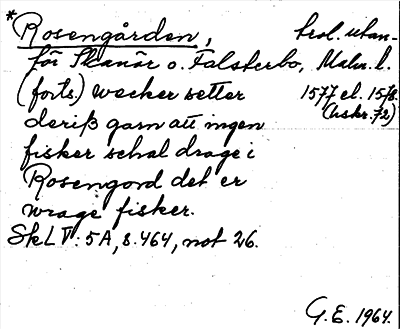 *Rosengården, trol. utan-
för Skanör o. Falsterbo, Malm. l.
(forts.) wecker setter 1577 el. 1578.
deriß garn att ingen (hskr. 72)
fisker schal drage i
Rosengord det er
wrage fisker.
SkL V: 5A, s. 464, not 26.
G.E. 1964.